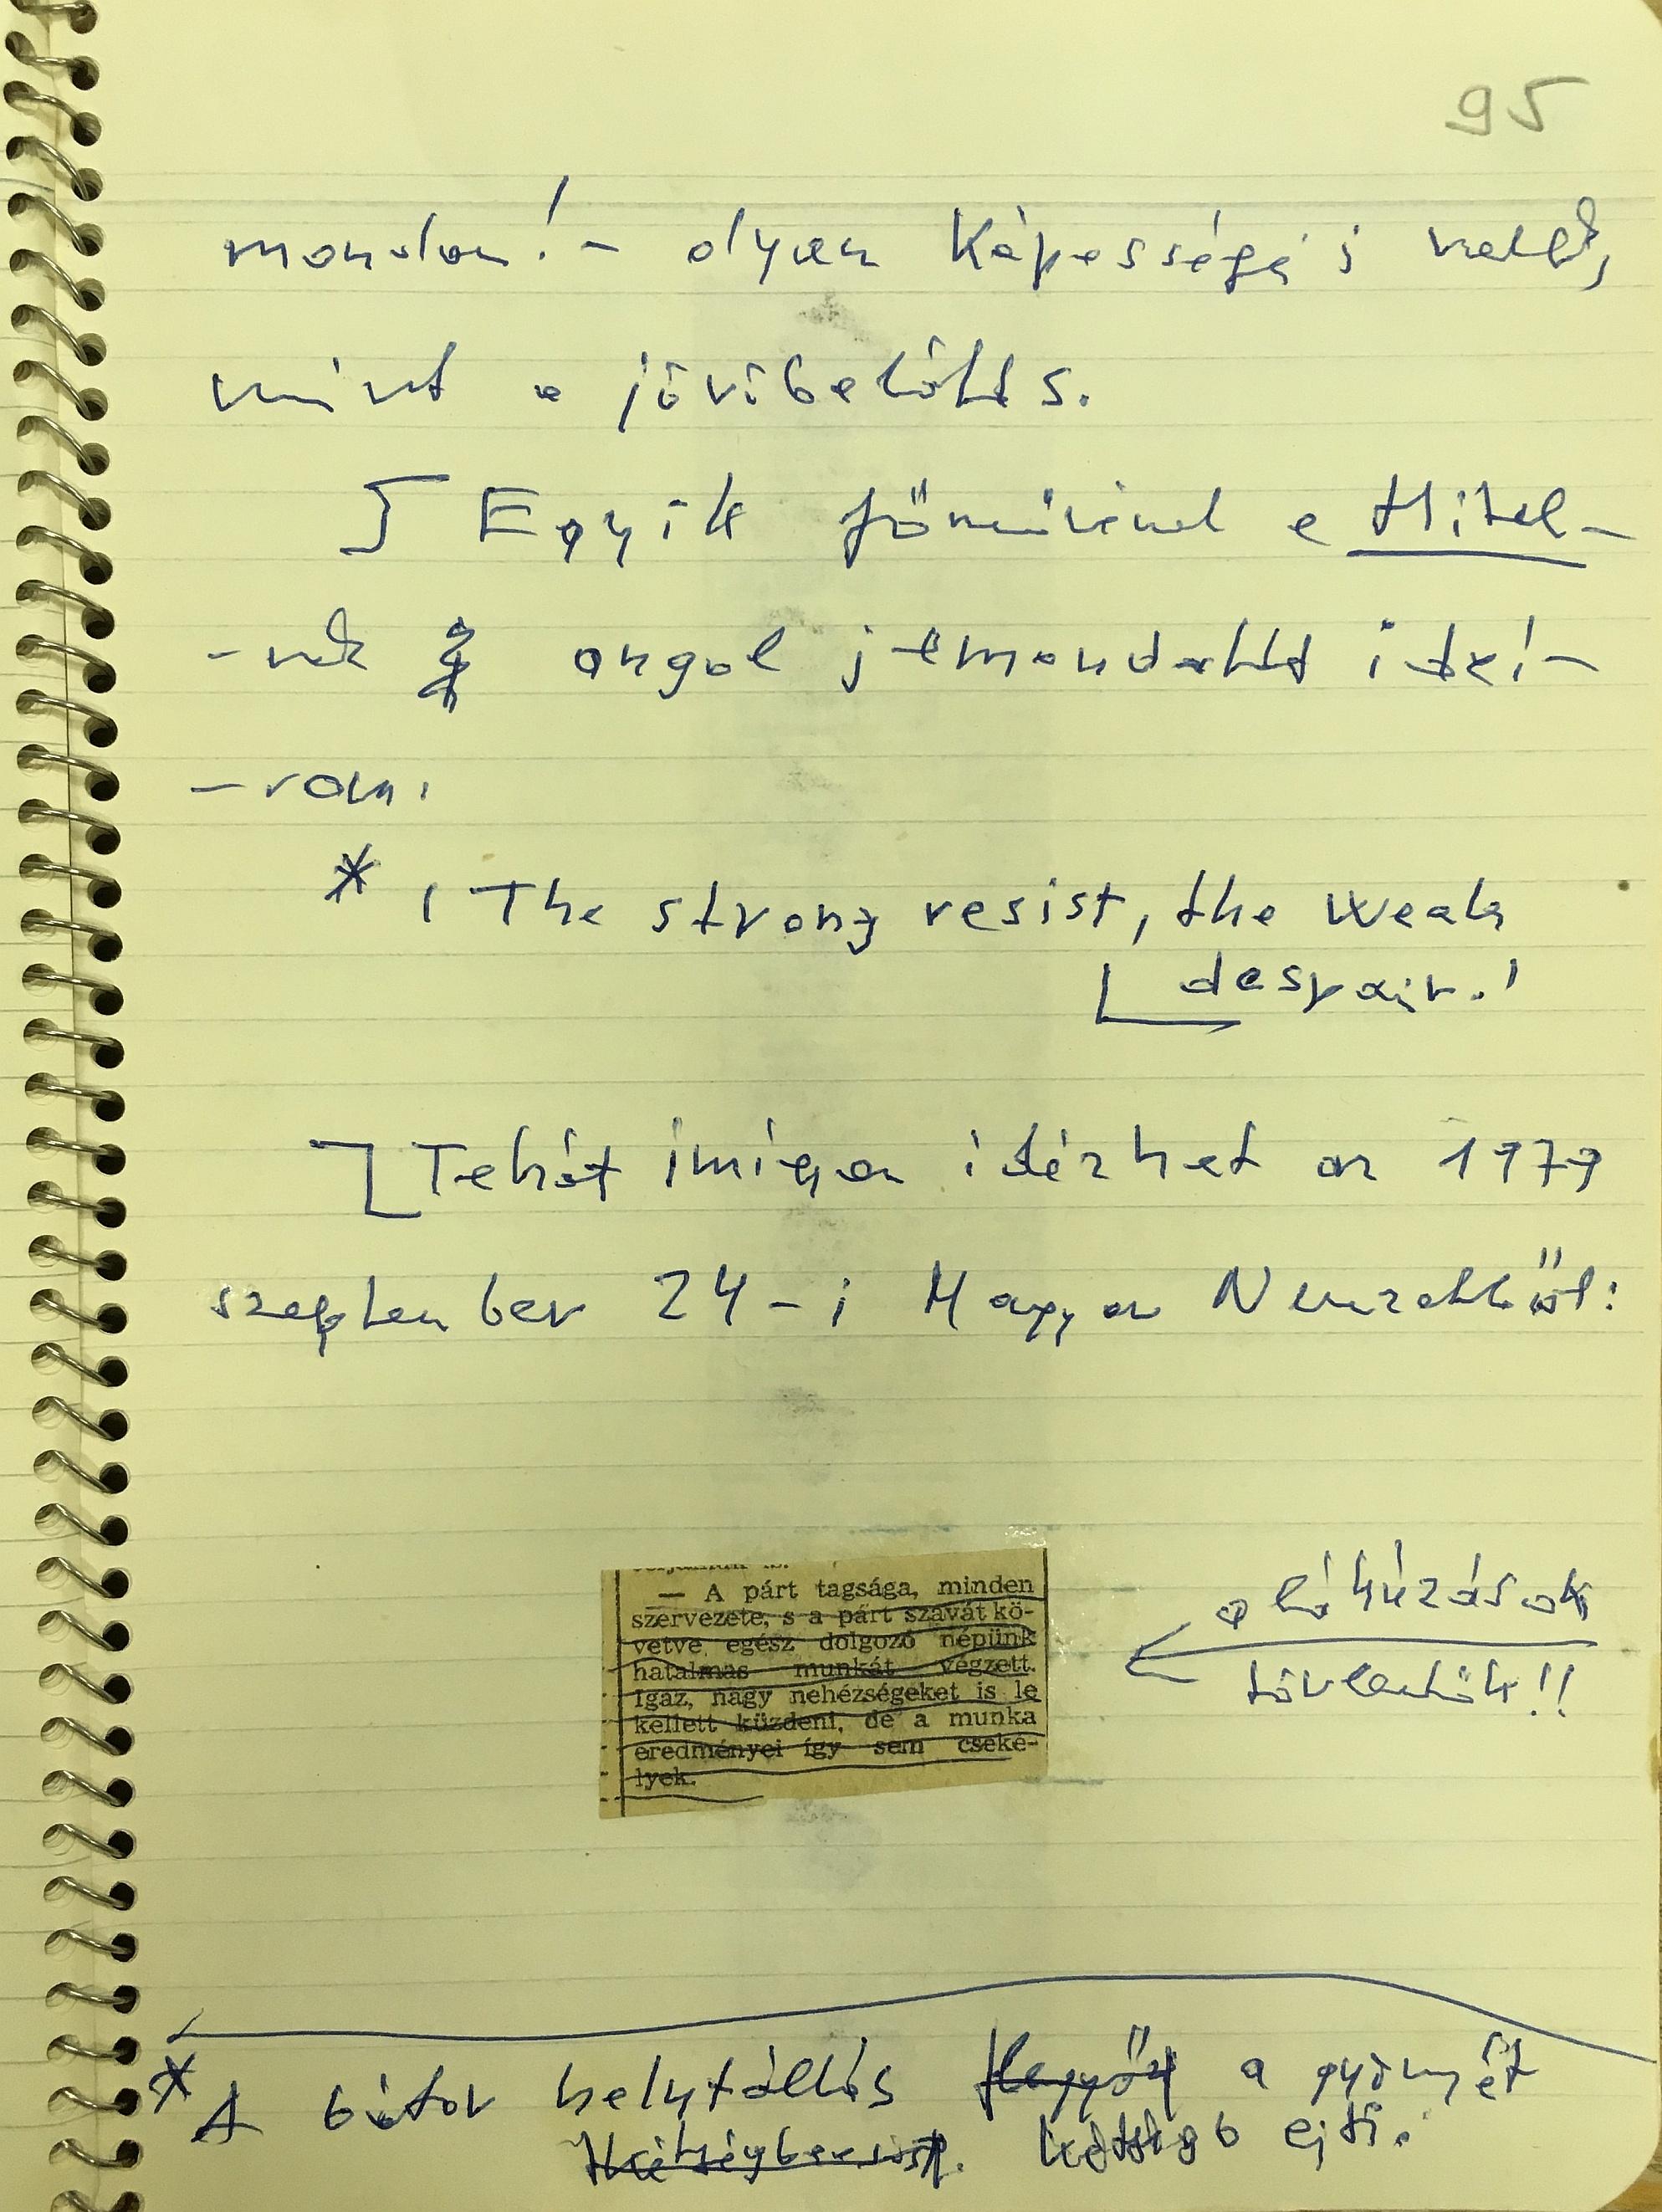 95
mondom! – olyan képességei voltak,
mint a jövőbelátás.
Egyik főművének a Hitel-
-nek angol jelmondatát idéz-
-vom:
* The strong resist, the weak
despair.
Tehát imígyen idézhet az 1979
szeptember 24-i Magyar Nemzetből:
— A párt tagsága, minden
szervezete, s a párt szavát kö-
vetve egész dolgozó népünk
hatalmas munkát végzett.
Igaz, nagy nehézségeket is le
kellett küzdeni, de a munka
eredményei így sem cseké-
lyek.
aláhúzások
tőlem!!
* A bátor helytállás a gyöngét
kétségb ejti.